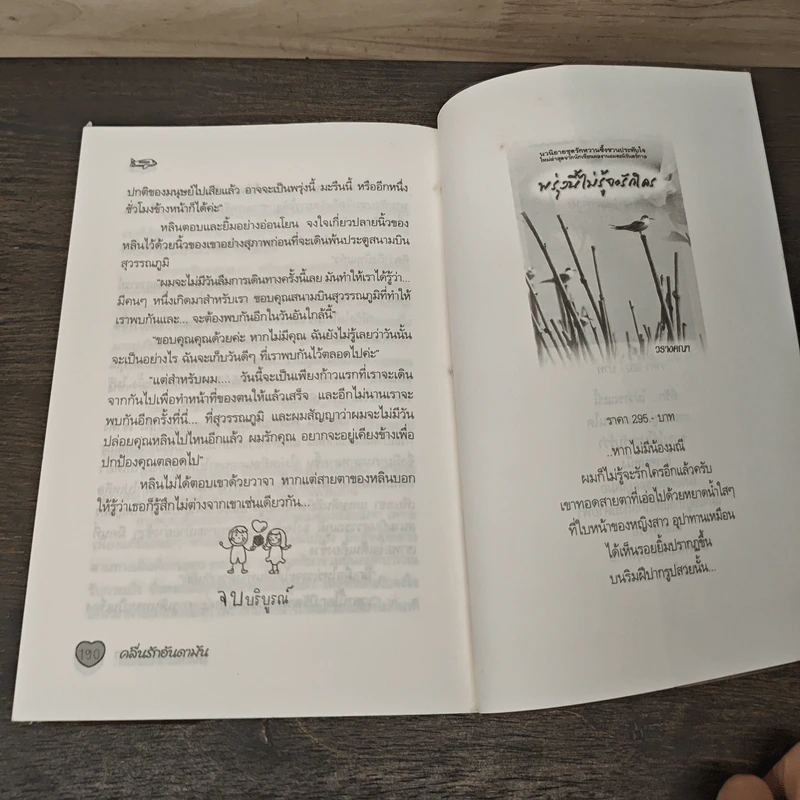 ปกติของมนุษย์ไปเสียแล้ว อาจจะเป็นพรุ่งนี้ มะรืนนี้ หรืออีกหนึ่ง
ชั่วโมงข้างหน้าก็ได้ค่ะ"
หลินตอบและยิ้มอย่างอ่อนโยน จงใจเกี่ยวปลายนิ้วของ
หลินไว้ด้วยนิ้วของเขาอย่างสุภาพก่อนที่จะเดินพ้นประตูสนามบิน
สุวรรณภูมิ
"ผมจะไม่มีวันลืมการเดินทางครั้งนี้เลย มันทำให้เราได้รู้ว่า...
มีคนๆ หนึ่งเกิดมาสำหรับเรา ขอบคุณสนามบินสุวรรณภูมิที่ทำให้
เราพบกันและ... จะต้องพบกันอีกในวันอันใกล้นี้"
"ขอบคุณคุณด้วยค่ะ หากไม่มีคุณ ฉันยังไม่รู้เลยว่าวันนั้น
จะเป็นอย่างไร ฉันจะเก็บวันดีๆ ที่เราพบกันไว้ตลอดไปค่ะ"
"แต่สำหรับผม.... วันนี้จะเป็นเพียงก้าวแรกที่เราจะเดิน
จากกันไปเพื่อทำหน้าที่ของตนให้แล้วเสร็จ และอีกไม่นานเราจะ
พบกันอีกครั้งที่นี่... ที่สุวรรณภูมิ และผมสัญญาว่าผมจะไม่มีวัน
ปล่อยคุณหลินไปไหนอีกแล้ว ผมรักคุณ อยากจะอยู่เคียงข้างเพื่อ
ปกป้องคุณตลอดไป"
หลินไม่ได้ตอบเขาด้วยวาจา หากแต่สายตาของหลินบอก
ให้รู้ว่าเธอก็รู้สึกไม่ต่างจากเขาเช่นเดียวกัน...
จบบริบูรณ์
190 คลื่นรักอันดามัน
นวนิยายชุดรักหวานซึ้งชวนประทับใจ
พรุ่งนี้ไม่รู้จะรักใคร
วรางคณา
ราคา 295.- บาท
..หากไม่มีน้องมณี
ผมก็ไม่รู้จะรักใครอีกแล้วครับ
เขาทอดสายตาที่เอ่อไปด้วยหยาดน้ำใสๆ
ที่ใบหน้าของหญิงสาว อุปาทานเหมือน
ได้เห็นรอยยิ้มปรากฏขึ้น
บนริมฝีปากรูปสวยนั้น...